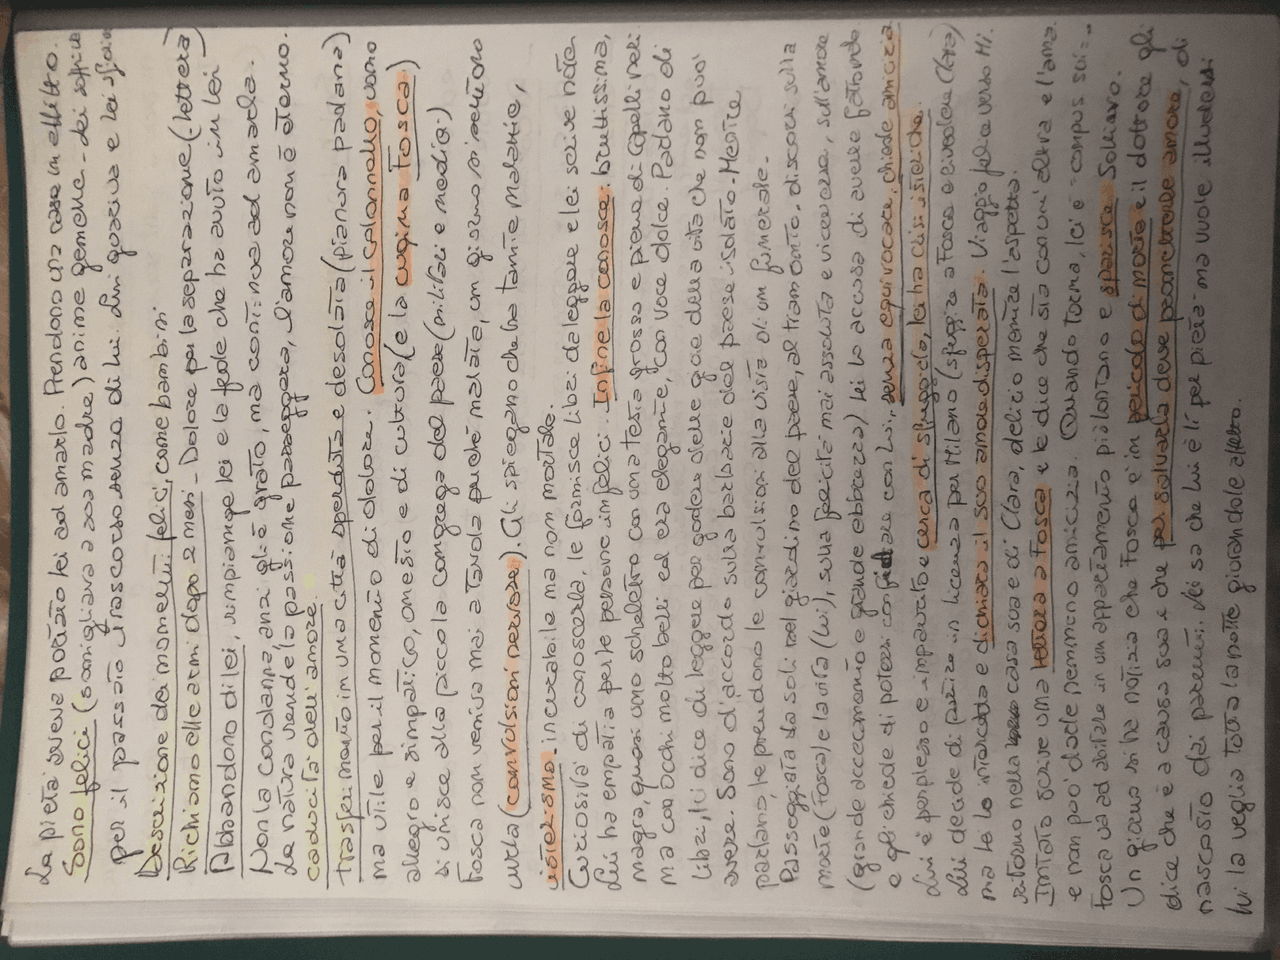 La pietà aveva portato lei ad amarlo. Prendono una casa in affitto.
Sono felici (somigliava a sua madre) anime gemelle - lei soffriva
per il passato trascorso senza di lui. Lui guariva e lei
Descrizione dei momenti felici, come bambini
Richiamo alle armi dopo 2 mesi - Dolore per la separazione (lettera)
Abbandono di lei, rimpiange lei e la fede che ha avuto in lei
Non la condanna, anzi gli è grato, ma continua ad amarla.
La natura rende la passione passeggera, l'amore non è eterno.
caducità dell'amore.
Trasferimento in una città sperduta e desolata (pianura padana)
ma utile per il momento di dolore. Conosce il colonnello, uomo
allegro e simpatico, onesto e di cultura (e la cugina Fosca)
Si unisce alla piccola congrega del paese (militari e medico.)
Fosca non veniva mai a tavola perché malata, un giorno si sentono
urla (convulsioni nervose). Gli spiegano che ha tante malattie,
isterismo - incurabile ma non mortale.
Curiosità di conoscerla, le fornisce libri da leggere e lei scrive note
Lui ha empatia per le persone infelici. Infine la conosce: bruttissima,
magra, quasi uno scheletro con una testa grossa e piena di capelli neri
ma con occhi molto belli ed era elegante, con voce dolce. Parlano di
libri, lei dice di leggere per godere delle gioie della vita che non può
avere. Sono d'accordo sulla barbarie del paese isolato. Mentre
parlano, le prendono le convulsioni alla vista di un funerale.
Passeggiata da soli nel giardino del paese, al tramonto, discorsi sulla
morte (Fosca) e la vita (lui), sulla felicità mai assoluta e viceversa, sull'amore
(grande accecamento e grande ebbrezza) lei lo accusa di averle fatto
e gli chiede di potersi confidare con lui, senza equivocare, chiede amicizia
Lui è perplesso e impaurito e cerca di sfuggirle, lei ha crisi isteriche.
Lui decide di partire in licenza per Milano (sfuggire a Fosca e rivedere Clara)
ma lei lo intercetta e dichiara il suo amore disperato. Viaggio felice verso Mi.
ritorno nella casa sua e di Clara, delirio mentre l'aspetta.
Intanto scrive una lettera a Fosca e le dice che sta con un'altra e l'ama
e non può darle nemmeno amicizia. Quando torna, lei è
Fosca va ad abitare in un appartamento più lontano e sparisce. Sollievo.
Un giorno si ha notizia che Fosca è in pericolo di morte e il dottore gli
dice che è a causa sua e che per salvarla deve prometterle amore, di
nascosto dei parenti. Lei sa che lui è lì per pietà ma vuole illudersi
lui la veglia tutta la notte giurandole affetto.